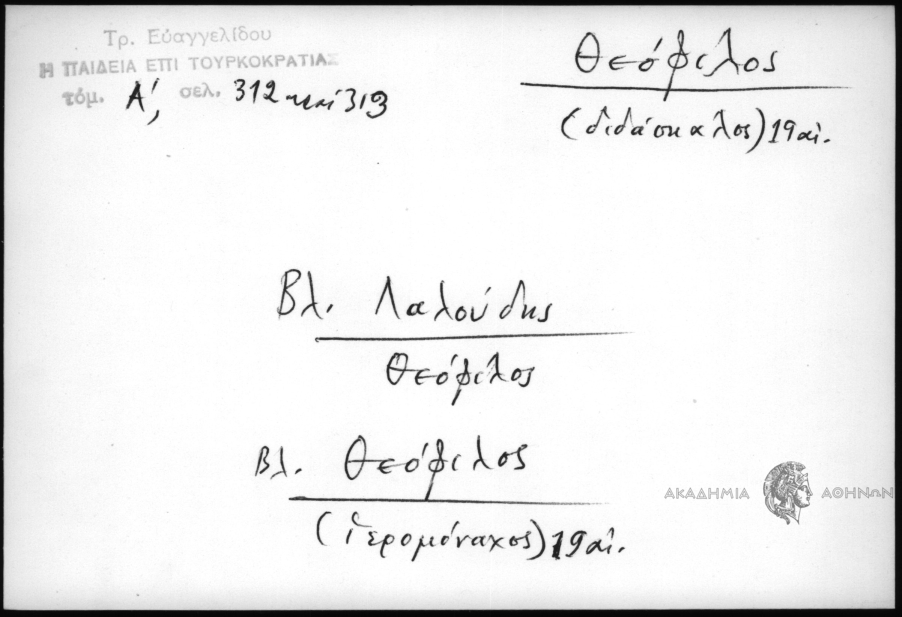 Τρ. Εὐαγγελίδου
Η ΠΑΙΔΕΙΑ ΕΠΙ ΤΟΥΡΚΟΚΡΑΤΙΑΣ
τόμ. Α', σελ. 312 καί 313
Θεόφιλος
(διδάσκαλος) 19 αἰ.
Βλ. Λαλούδης
Θεόφιλος
Βλ. Θεόφιλος
(ἱερομόναχος) 19 αἰ.
ΑΚΑΔΗΜΙΑ ΑΘΗΝΩΝ